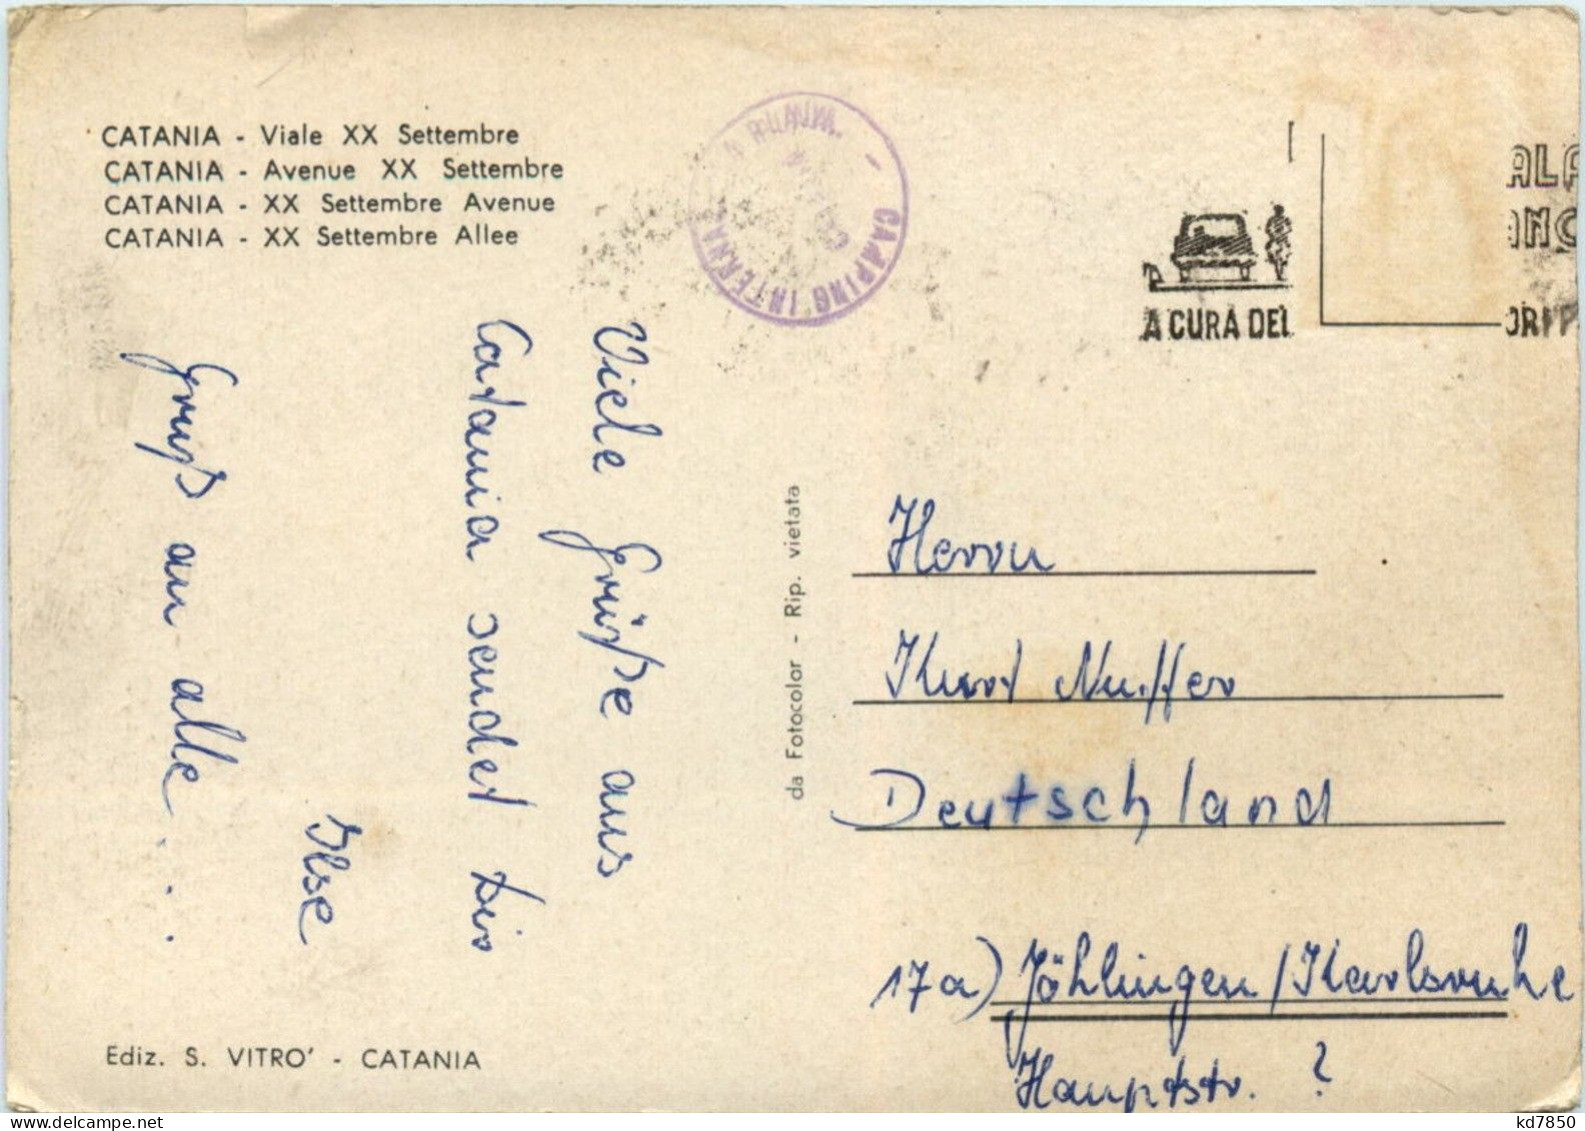 CATANIA - Viale XX Settembre
CATANIA - Avenue XX Settembre
CATANIA - XX Settembre Avenue
CATANIA - XX Settembre Allee
CAMPING INTERNA
A CURA DEL
Viele Grüße aus
Catania sendet Dir
Ilse
Gruß an alle....
da Fotocolor - Rip. vietata
Herrn
Kurt Nuffer
Deutschland
17a) Jöhlingen/Karlsruhe
Hauptstr. ?
Ediz. S. VITRO' - CATANIA
www.delcampe.net
kd7850